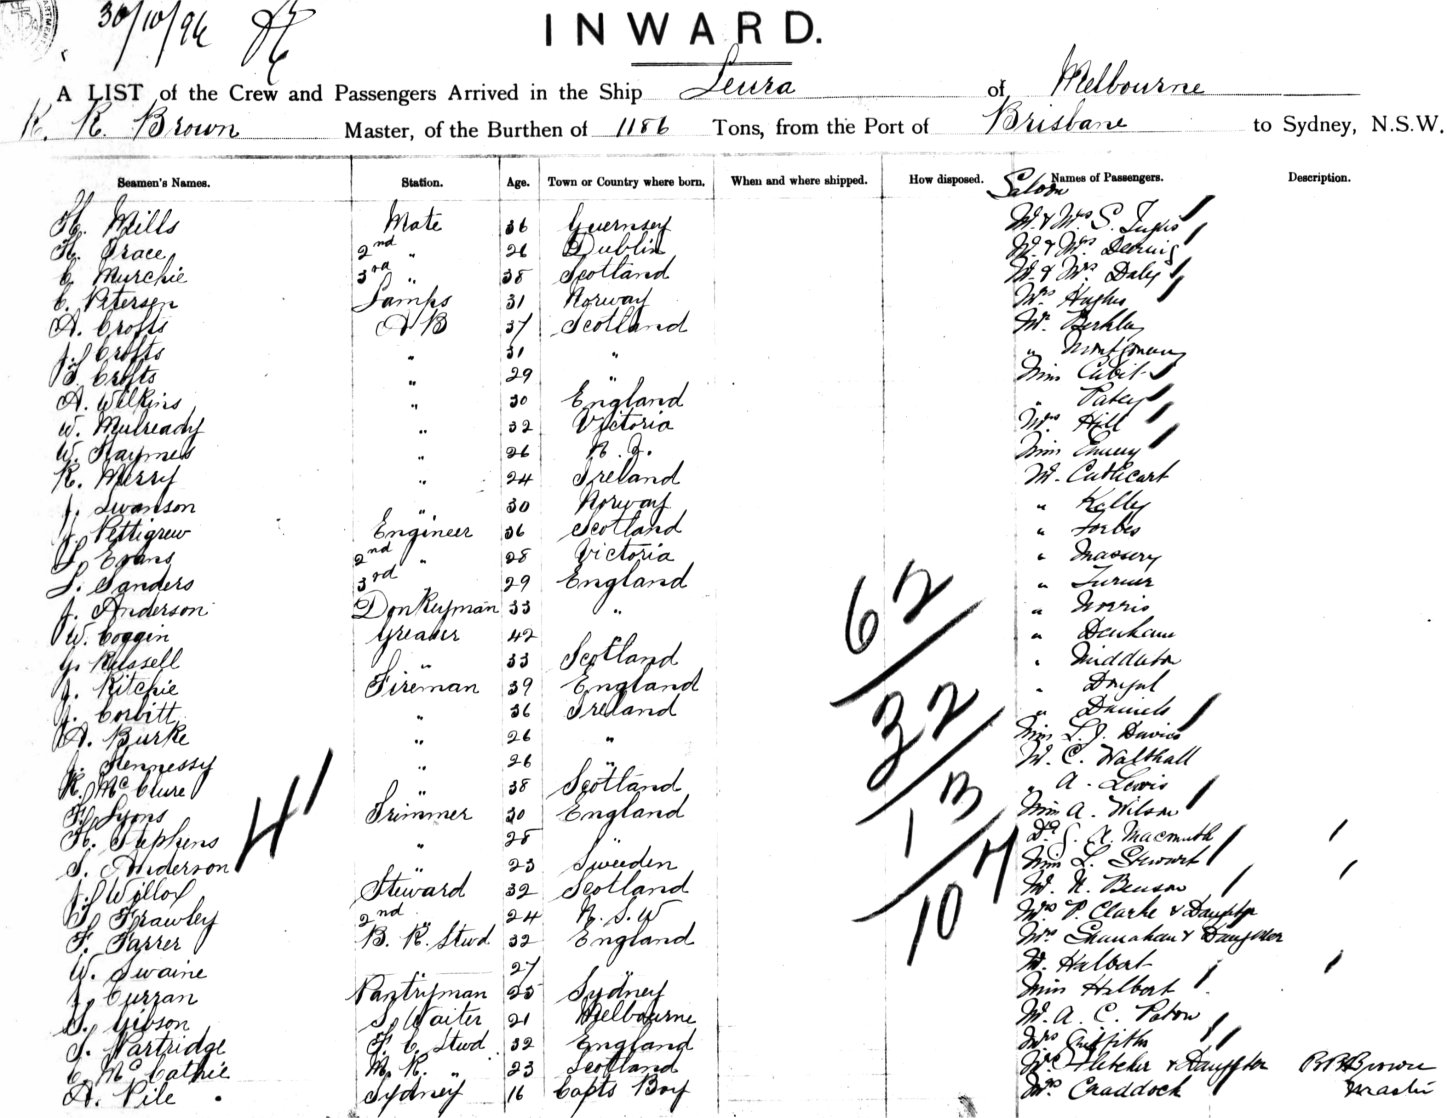 30/10/96
INWARD.
A LIST of the Crew and Passengers Arrived in the Ship Leura of Melbourne
R. R. Brown Master, of the Burthen of 1186 Tons, from the Port of Brisbane to Sydney, N.S.W.
Seamen's Names. Station. Age. Town or Country where born. When and where shipped. How disposed. Names of Passengers. Description.
Saloon
H. Mills Mate 36 Guernsey Mr & Mrs S.
H. Grace 2nd " 26 Dublin Mr & Mrs Deering
C. Murchie 3rd " 38 Scotland Mr & Mrs Daly
C. Petersen Lamps 31 Norway Mrs Hughes
A. Crofts AB 37 Scotland Mr. Berkley
J. Crofts " 31 " " Montgomery
T. Crofts " 29 " Miss Cubit
A. Wilkins " 30 England " Patey
W. Mulready " 32 Victoria Mrs Hill
W. Haymes " 26 N.Z. Miss Emery
R. Merry " 24 Ireland Mr. Cathcart
J. Swanson " 30 Norway " Kelley
J. Pettigrew Engineer 36 Scotland " Forbes
L. Evans 2nd " 28 Victoria " Massery
S. Sanders 3rd 29 England " Turner
J. Anderson Donkeyman 33 " " Norris
W. Coggin Greaser 42 " Denham
G. Russell " 33 Scotland " Middleton
J. Ritchie Fireman 39 England "
J. Corbitt " 36 Ireland " Daniels
A. Burke " 26 " Miss L. J. Davies
J. Hennessy " 26 " Mr. C. Walthall
R. McClure " 38 Scotland " A. Lewis
F. Lyons Trimmer 30 England Miss A. Wilson
H. Stephens " 28 Dr. J. A.
S. Anderson " 23 Sweeden Miss L. Stewart
J. Willox Steward 32 Scotland Mr. N. Benson
T. Frawley 2nd " 24 N.S.W Mrs P. Clarke & Daughter
F. Farrer B. R. Stwd. 32 England Mrs Shanahan & Daughter
W. Swaine " 27 Mr. Halbert
J. Curran Pantryman 25 Sydney Miss Halbert
S. Gibson S. Waiter 21 Melbourne Mr. A. C. Paton
S. Partridge F. C. Stwd. 32 England Mrs Griffiths
C. McCathie M. R. " 23 Scotland Mrs Fletcher & Daughter R R Brown
A. Pile Sydney 16 Capts Boy Mrs Craddock Master
41
62
32
13
107